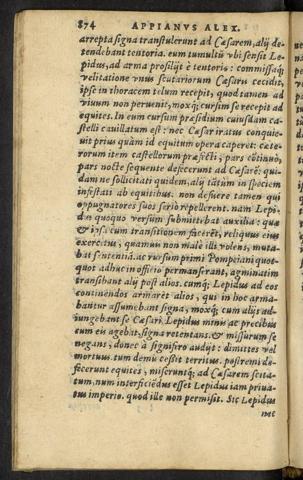 874 APPIANVS ALEX.
arrepta signa transtulerunt ad Cæsarem, alij de-
tendebant tentoria. eum tumultũ vbi sensit Le-
pidus, ad arma prosilijt è tentorio: commissaq́;
velitatione vnus scutariorum Cæsaris cecidit,
ipse in thoracem telum recepit, quod tamen ad
viuum non peruenit, moxq́; cursim se recepit ad
equites. In eum cursum præsidium cuiusdam ca-
stelli cauillatum est: nec Cæsar iratus conquie-
uit prius quàm id equitum opera caperet: cæte-
rorum item castellorum præfecti, pars cõtinuò,
pars nocte sequente defecerunt ad Cæsarẽ: qui-
dam ne sollicitati quidem, alij tãtùm in speciem
infestati ab equitibus. non defuere tamen qui
oppugnatores suos seriò repellerent. nam Lepi-
dus quoquo versum submittebat auxilia: quæ
& ipsa cum transitionem facerẽt, reliquus eius
exercitus, quamuis non malè illi volens, muta-
bat sententiã. ac rursùm primi Pompeiani quot-
quot adhuc in officio permanserant, agminatim
transibant alij post alios. cumq́; Lepidus ad eos
continendos armaret alios, qui in hoc arma-
bantur assumebant signa, moxq́; cum alijs ad-
iungebant se Cæsari. Lepidus minis ac precibus
cum eis agebat, signa retentans, & missurum se
negans, donec à signifero audijt: dimittes vel
mortuus. tum demũ cessit territus. postremi de-
fecerunt equites, miseruntq́; ad Cæsarem scita-
tum, num interficiẽdus esset Lepidus iam priua-
tus imperio. quod ille non permisit. Sic Lepidus
nec